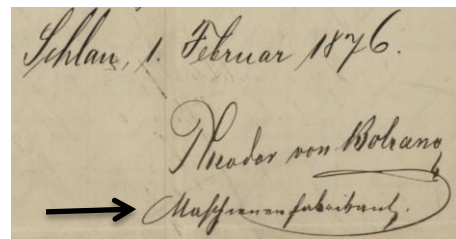 Schlan, 1. Februar 1876.
Theodor von Bolzano
Maschinenfabrikant.